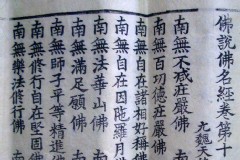 佛說佛名經卷第十
元魏天
南無不戒莊嚴佛
南無百功德莊嚴佛
南無自在諸相好稱佛
南無自在因陀羅月佛
南無法華山佛
南無師子平等精進佛
南無滿足願佛
南無修行自在堅固佛
南無樂法修行佛